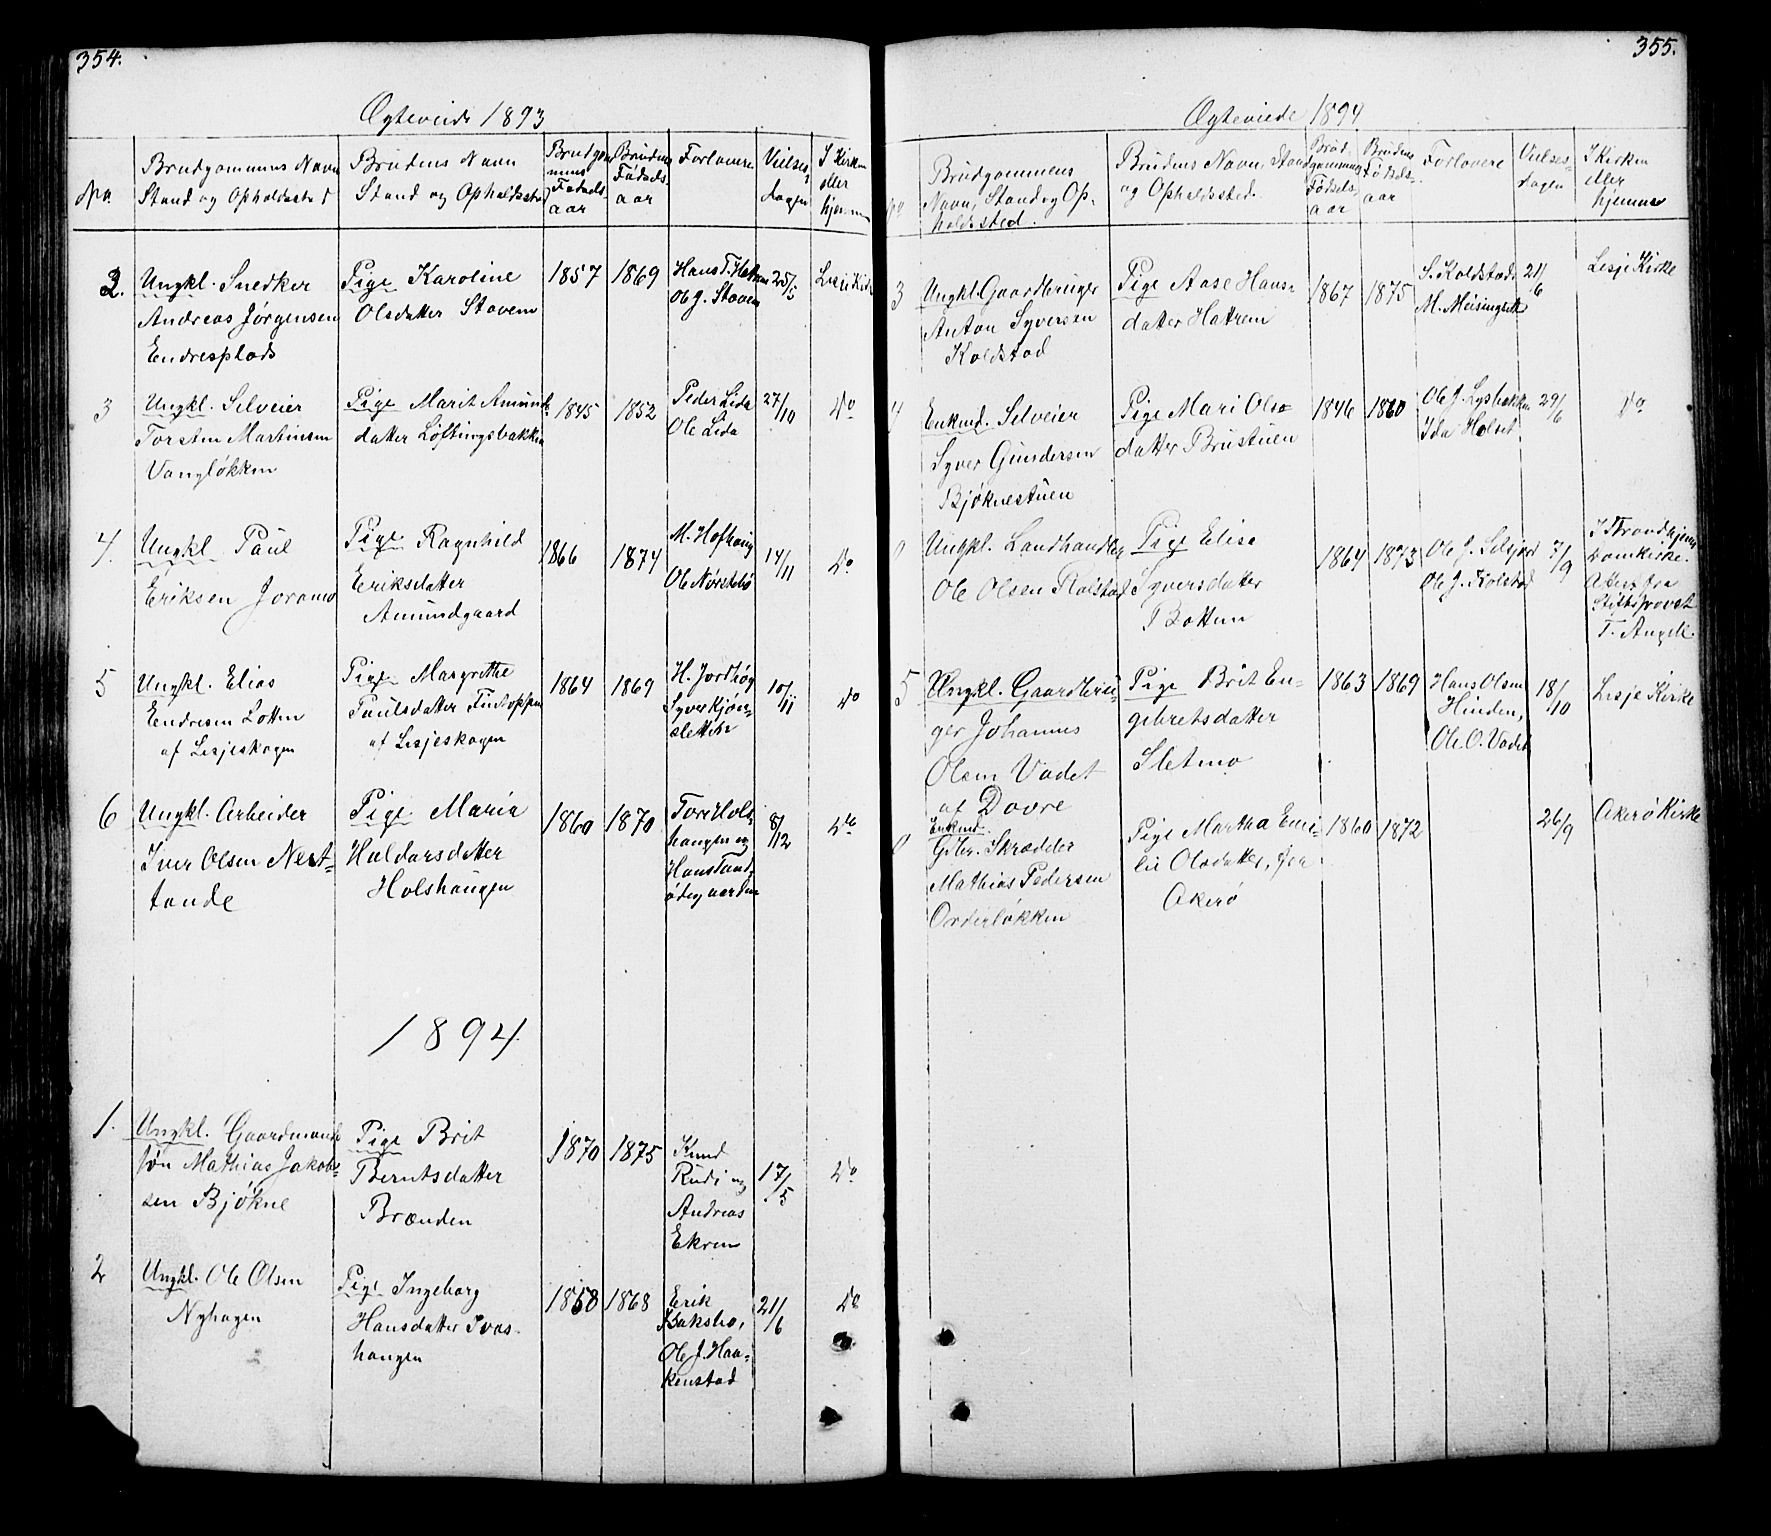 354.
Ægteviede 1893
No
Brudgommens Navn
Stand og Opholdssted
Brudens Navn
Stand og Opholdssted
Brudgom
mens
Fødsels-
aar
Brudens
Fødsels
aar
Forlovere
Vielses-
dagen
I Kirken
eller
hjemme
2. Ungkl. Snedker
Andreas Jørgensen
Endresplads
Pige Karoline
Olsdatter Stavem
1857 1869
Hans T. Hattrem
Ole J. Stavem
25/5
Lesje Kirke
3 Ungkl. Selveier
Torsten Martinsen
Vangløkken
Pige Marit Amunds
datter Løftingsbakken
1845 1852
Peder Lida
Ole Lida
27/10
Do
4. Ungkl Paul
Eriksen Joramo
Pige Ragnhild
Eriksdatter
Amundgaard
1866 1874
M. Hofhaug
Ole Nørstebø
14/11
Do
5 Ungkl. Elias
Endresen Lotten
af Lesjeskogen
Pige Margrethe
Paulsdatter
af Lesjeskogen
1864 1869
H. Jordhøy
Syver Kjøre-
sletten
10/11
Do
6 Ungkl. Arbeider
Iver Olsen Nest-
tande
Pige Maria
Haldorsdatter
Holshaugen
1860 1870
Tore Hols-
haugen og
Hans Tand-
ødegaarden
8/12
Do
1894
1. Ungkl. Gaardmands
søn Mathias Jakob-
sen Bjøkne
Pige Brit
Berntsdatter
Brænden
1870 1875
Knud
Rudi og
Andreas
Ekren
17/5
Do
2 Ungkl. Ole Olsen
Nyhagen
Pige Ingeborg
Hansdatter Ivas-
haugen
1858 1868
Erik
Baksbo,
Ole J. Haa-
kenstad
21/6
Do
355.
Ægteviede 1894
No
Brudgommens
Navn, Stand og Op-
holdssted.
Brudens Navn, Stand
og Opholdssted.
Brud-
gommens
Fødsels-
aar
Brudens
Fødsels-
aar
Forlovere
Vielses-
dagen
I Kirken
eller
hjemme
3 Ungkl. Gaardbruger
Anton Syversen
Koldstad
Pige Aase Hans-
datter Hattrem
1867 1875
S. Koldstad
M. Meisingset
21/6
Lesje Kirke
4 Enkmd. Selveier
Syver Gundersen
Bjøknestuen
Pige Mari Ols-
datter Brustuen
1846 1860
Ole J. Lysbakken
Ida Holset
29/6
Do
Ungkl. Landhandler
Ole Olsen Kolstad
Pige Elise
Syversdatter
Bottem
1864 1873
Ole J. Selsjord
Ole J. Kolstad
7/9
I Throndhjems
Domkirke.
Attest fra
Stiftsprovst
T. Angell.
5 Ungkl. Gaardbru-
ger Johannes
Olsen Vadet
af Dovre
Pige Brit En-
gebretsdatter
Sletmo
1863 1869
Hans Olsen
Hinden,
Ole O. Vadet
18/10
Lesje Kirke
Enkmd.
Gbr. Skrædder
Mathias Pedersen
Orderløkken
Pige Martha Emi-
lie Olsdatter, fra
Akerø
1860 1872
26/9
Akerø Kirke